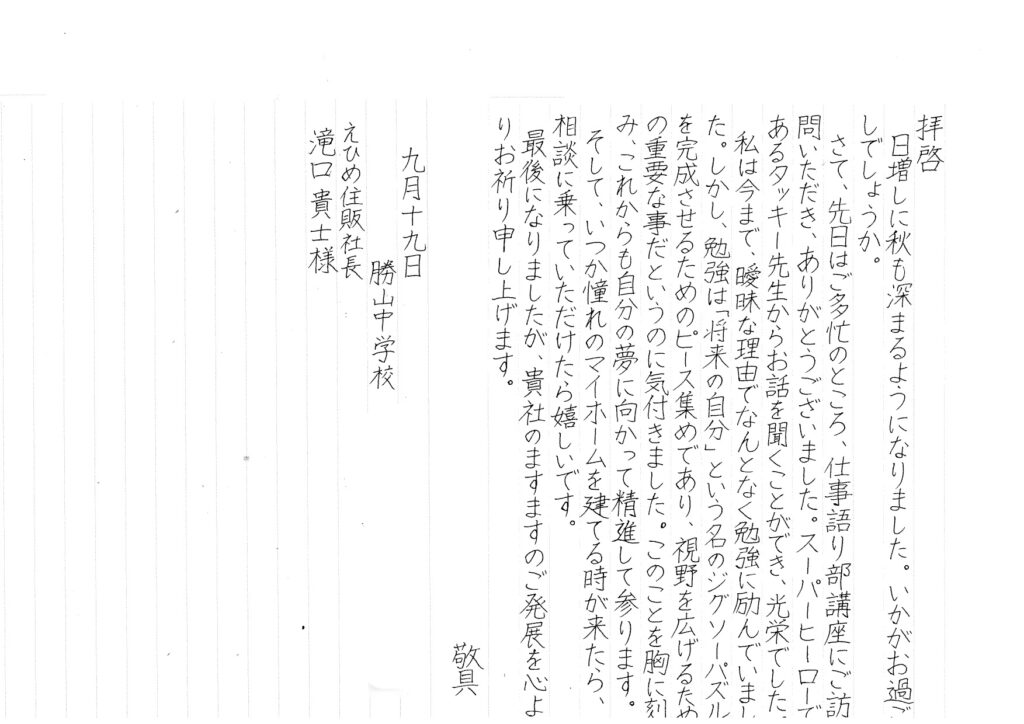 拝啓
日増しに秋も深まるようになりました。いかがお過ご
しでしょうか。
さて、先日はご多忙のところ、仕事語り部講座にご訪
問いただき、ありがとうございました。スーパーヒーローで
あるタッキー先生からお話を聞くことができ、光栄でした。
私は今まで、曖昧な理由でなんとなく勉強に励んでいまし
た。しかし、勉強は「将来の自分」という名のジグソーパズル
を完成させるためのピース集めであり、視野を広げるため
の重要な事だというのに気付きました。このことを胸に刻
み、これからも自分の夢に向かって精進して参ります。
そして、いつか憧れのマイホームを建てる時が来たら、
相談に乗っていただけたら嬉しいです。
最後になりましたが、貴社のますますのご発展を心よ
りお祈り申し上げます。
敬具
九月十九日
勝山中学校
えひめ住販社長
滝口貴士様